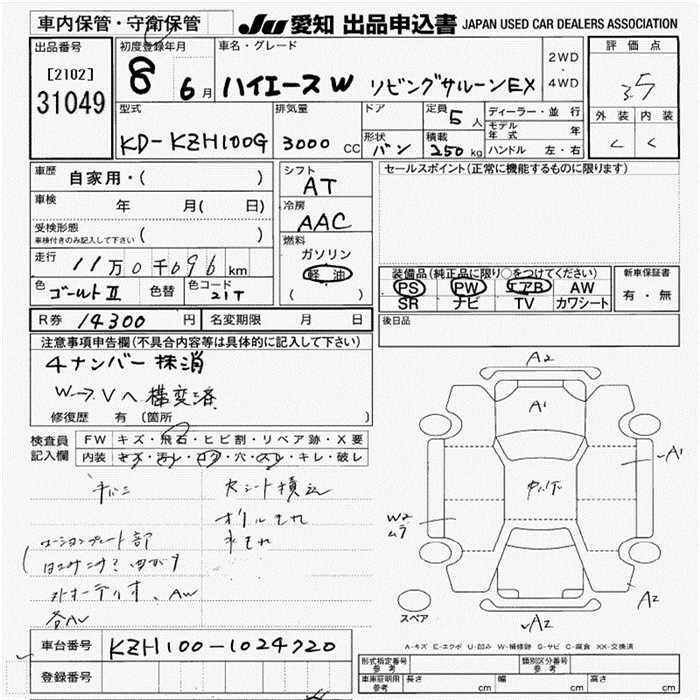 車内保管・守衛保管
JU 愛知 出品申込書 JAPAN USED CAR DEALERS ASSOCIATION
出品番号
[2102]
31049
初度登録年月
8 6月
車名・グレード
ハイエースW リビングサルーンEX
2WD
・
4WD
評価点
3.5
外装 内装
C C
型式
KD-KZH100G
排気量
3000 CC
ドア
形状
バン
定員
5人
積載
250 kg
ディーラー・並行
モデル年式 年
ハンドル 左・右
車歴
自家用・( )
車検
年 月( 日)
受検形態
車検付きのみ記入して下さい ( )
走行
11万0千696km
色
ゴールドⅡ
色替
色コード
21T
シフト
AT
冷房
AAC
燃料
ガソリン
軽油
( )
セールスポイント(正常に機能するものに限ります)
装備品(純正品に限り○をつけてください)
PS PW エアB AW
SR ナビ TV カワシート
新車保証書
有・無
R券 14300円
名変期限 月 日
後日品
注意事項申告欄(不具合内容等は具体的に記入して下さい)
4ナンバー抹消
W→Vへ構変済
修復歴 有 (箇所 )
検査員
記入欄
FW キズ・飛石・ヒビ割・リペア跡・X要
内装 キズ・汚れ・コゲ・穴・スレ・キレ・破レ
A2
A1
A1
W2
ムラ
A2
A2
スペア
A-キズ E-エクボ U-凹み W-補修跡 S-サビ C-腐食 XX-交換済
車台番号 KZH100-1024720
登録番号
形式指定番号
参考
類別区分番号
参考
車庫証明用
参考
長さ cm 幅 cm 高さ cm